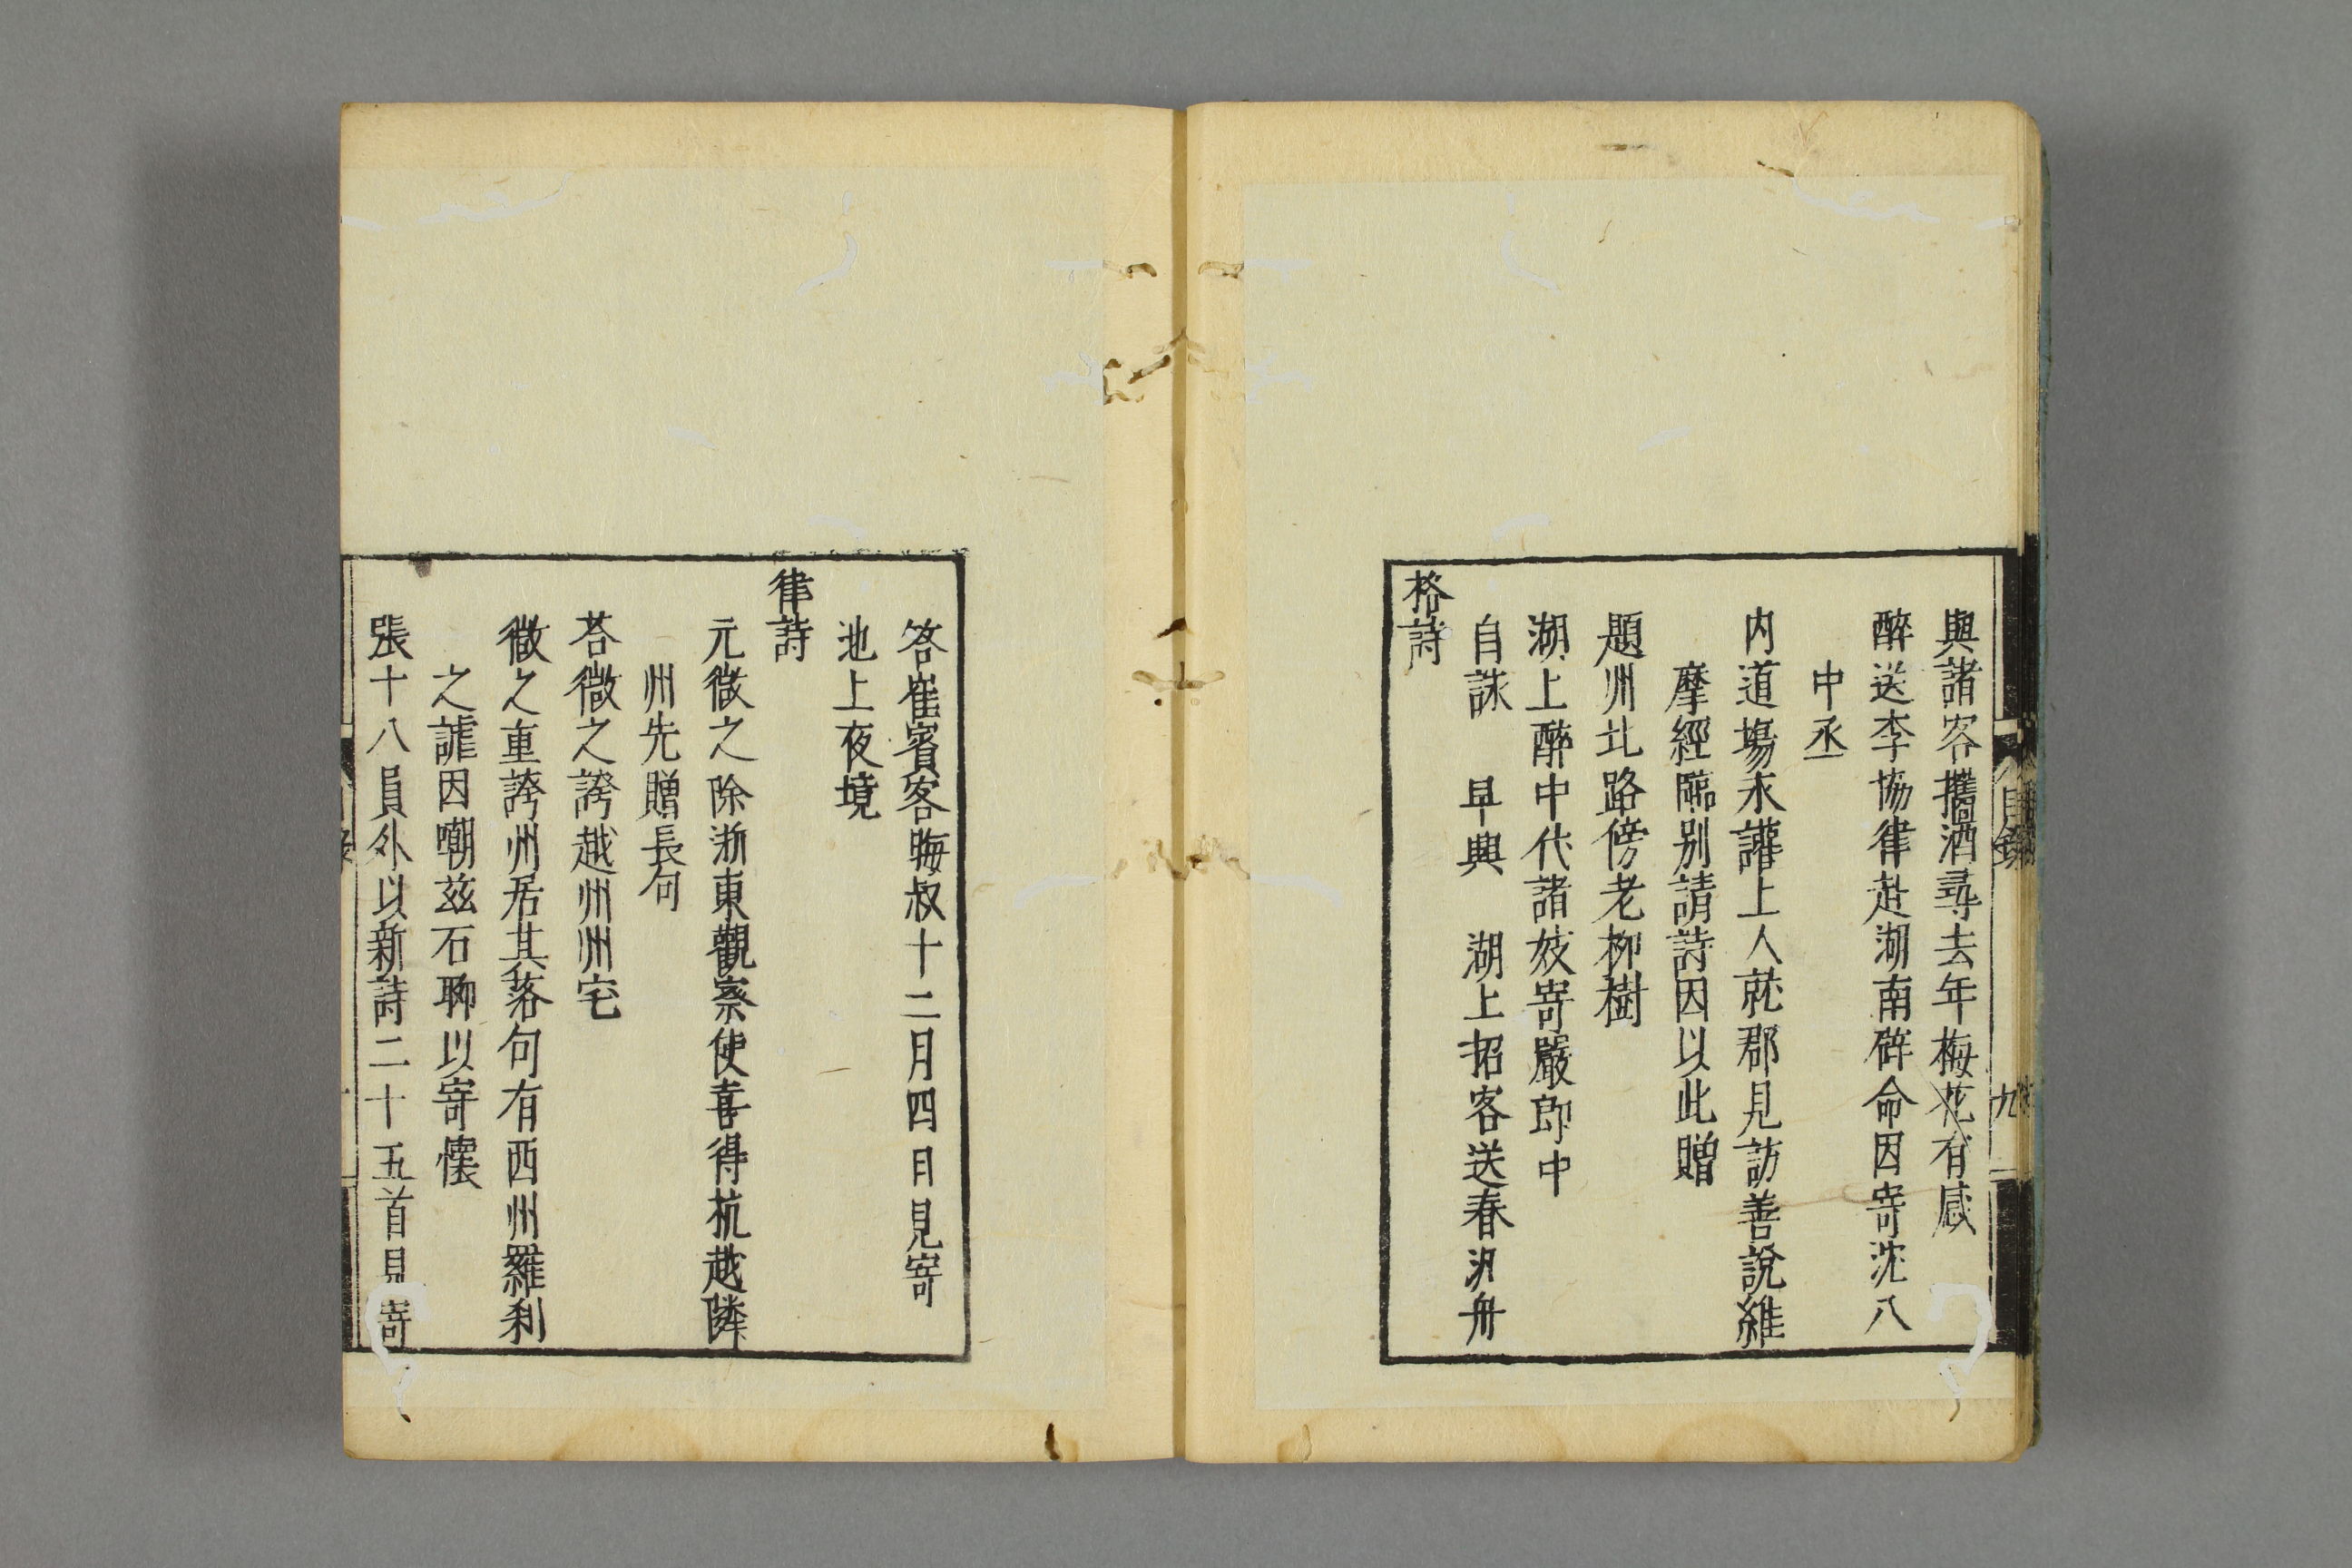 與諸客攜酒尋去年梅花有感
醉送李協律赴湖南辟命因寄沈八
中丞
内道場永讙上人就郡見訪善說維
摩經臨别請詩因以此贈
題州北路傍老柳樹
湖上醉中代諸妓寄嚴郎中
自詠 早興 湖上招客送春汎舟
格詩
目錄
九
答崔賓客晦叔十二月四日見寄
池上夜境
律詩
元微之除浙東觀察使喜得杭越隣
州先贈長句
荅微之誇越州州宅
微之重誇州居其落句有西州羅刹
之謔因嘲茲石聊以寄懷
張十八員外以新詩二十五首見寄